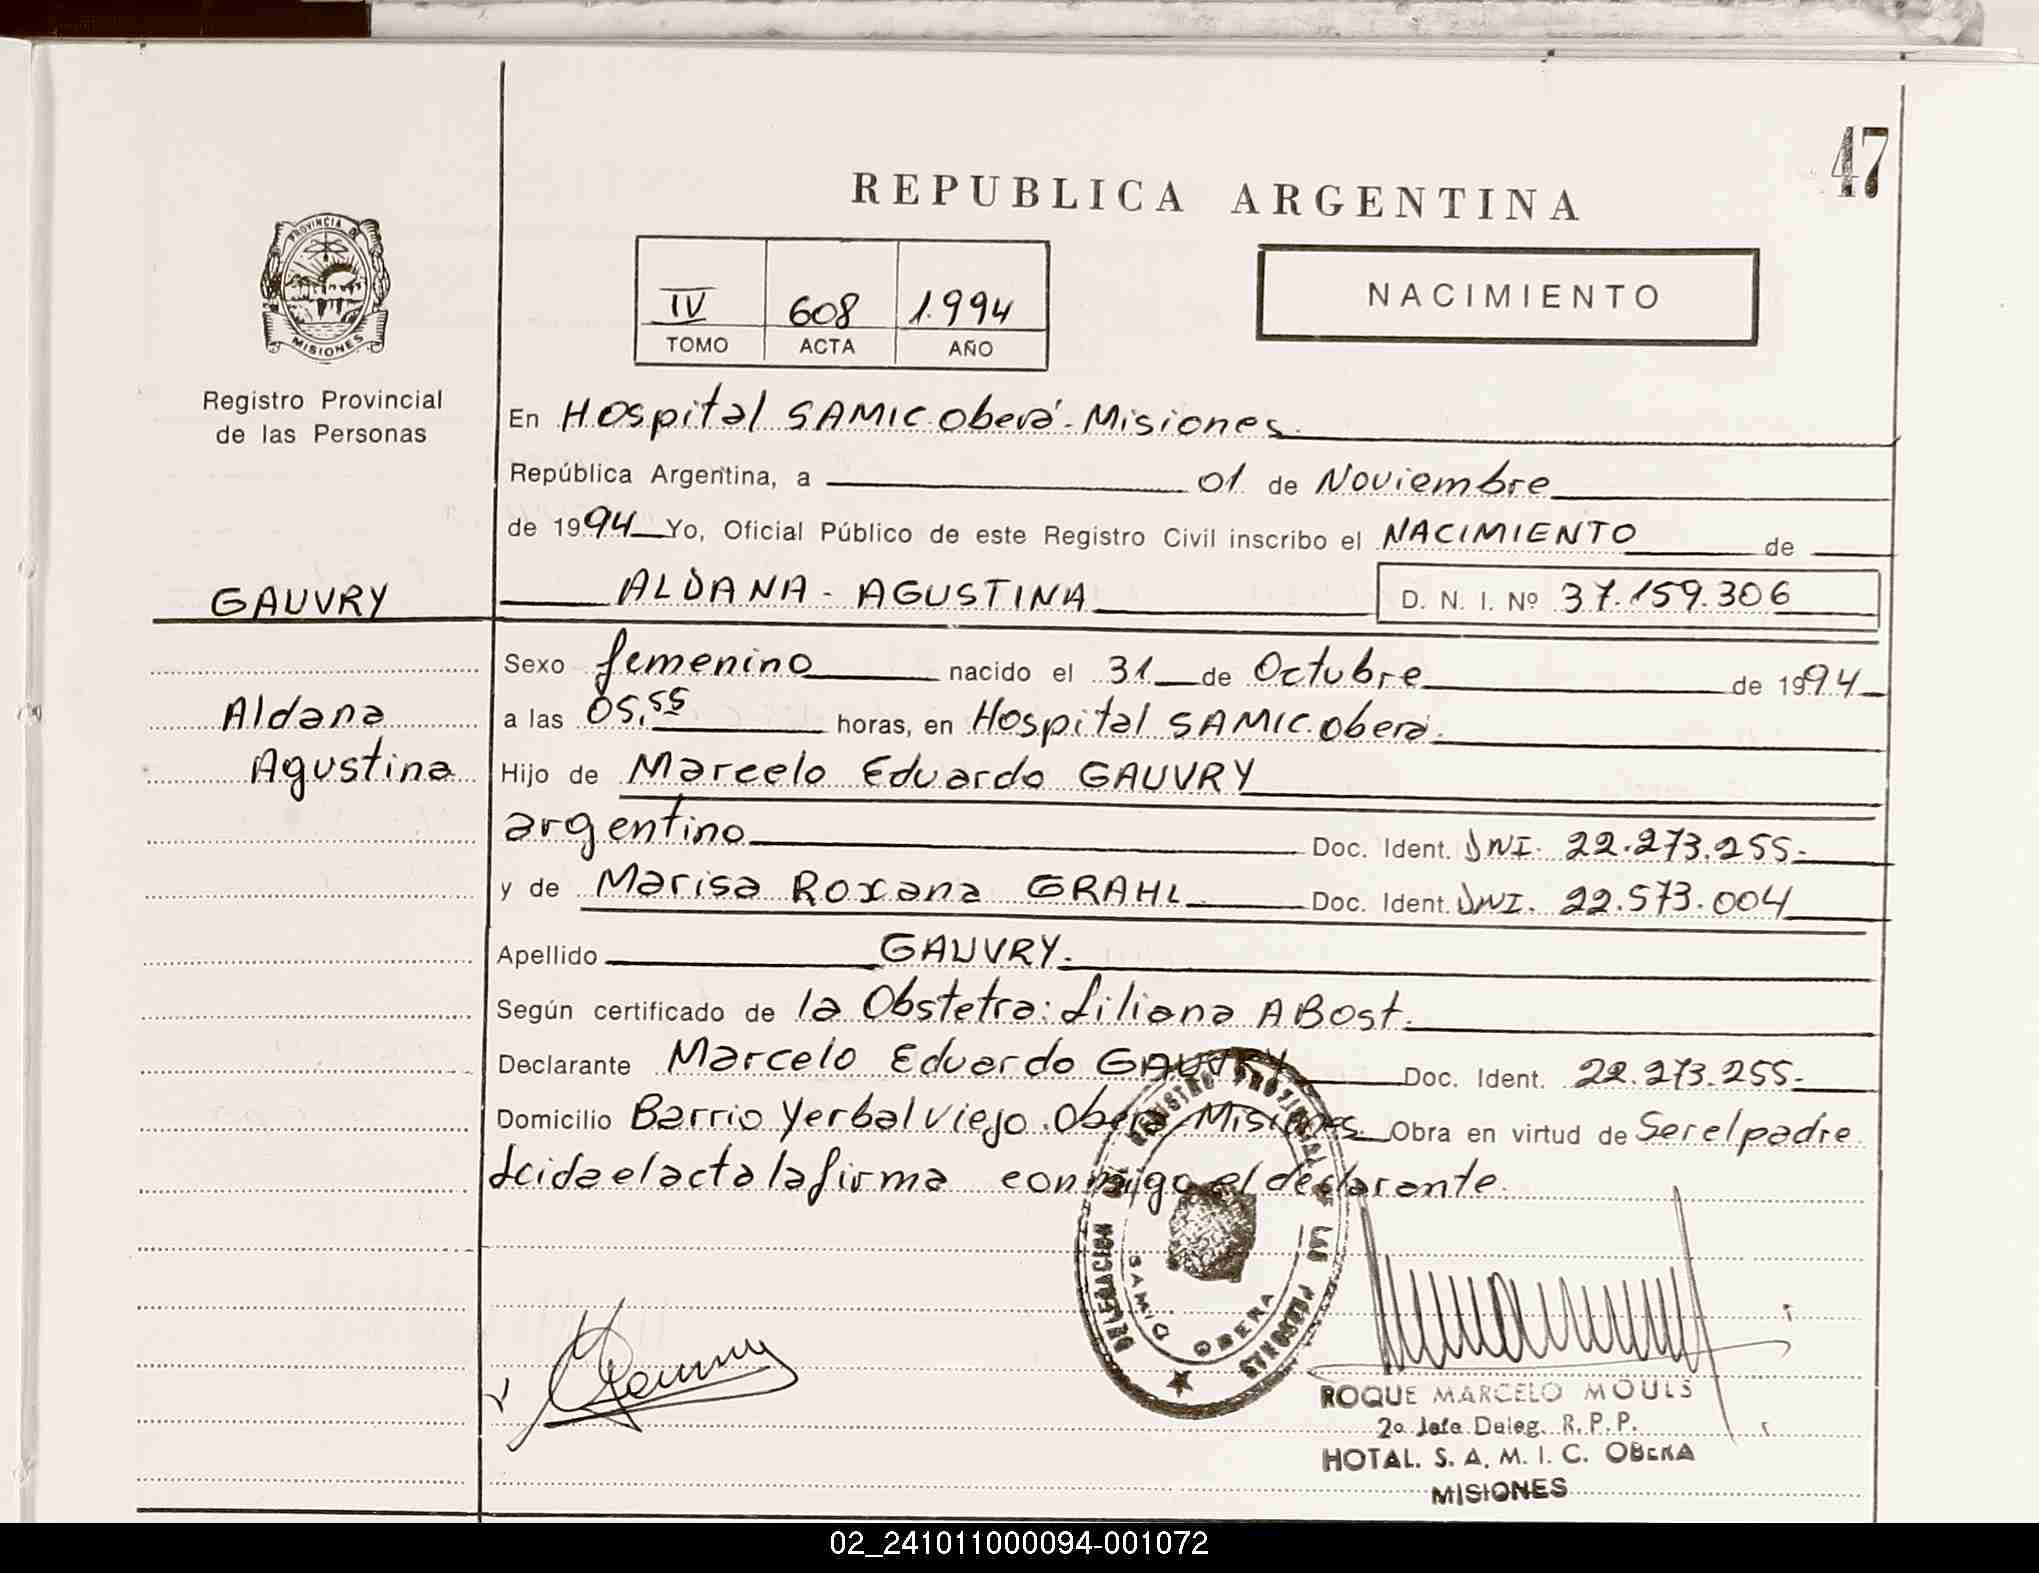 47
REPUBLICA ARGENTINA
PROVINCIA DE
MISIONES
Registro Provincial
de las Personas
IV 608 1.994
TOMO ACTA AÑO
NACIMIENTO
En Hospital SAMIC. Oberá - Misiones.
República Argentina, a 01 de Noviembre
de 1994 Yo, Oficial Público de este Registro Civil inscribo el NACIMIENTO de
GAUVRY
ALDANA - AGUSTINA D. N. I. Nº 37.159.306
Sexo femenino nacido el 31 de Octubre de 1994
Aldana
Agustina
a las 05,55 horas, en Hospital SAMIC. Oberá.
Hijo de Marcelo Eduardo GAUVRY
argentino Doc. Ident. DNI. 22.273.255.
y de Marisa Roxana GRAHL Doc. Ident. DNI. 22.573.004
Apellido GAUVRY.
Según certificado de la Obstetra: Liliana A Bost.
Declarante Marcelo Eduardo GAUVRY Doc. Ident. 22.273.255.
Domicilio Barrio Yerbal viejo. Oberá, Misiones. Obra en virtud de Ser el padre
Leida el acta la firma conmigo el declarante.
DELEGACION REGISTRO PROVINCIAL DE LAS PERSONAS
SAMIC OBERA
ROQUE MARCELO MOULS
2º Jefe Deleg. R. P. P.
HOTAL. S. A. M. I. C. OBERA
MISIONES
02_241011000094-001072